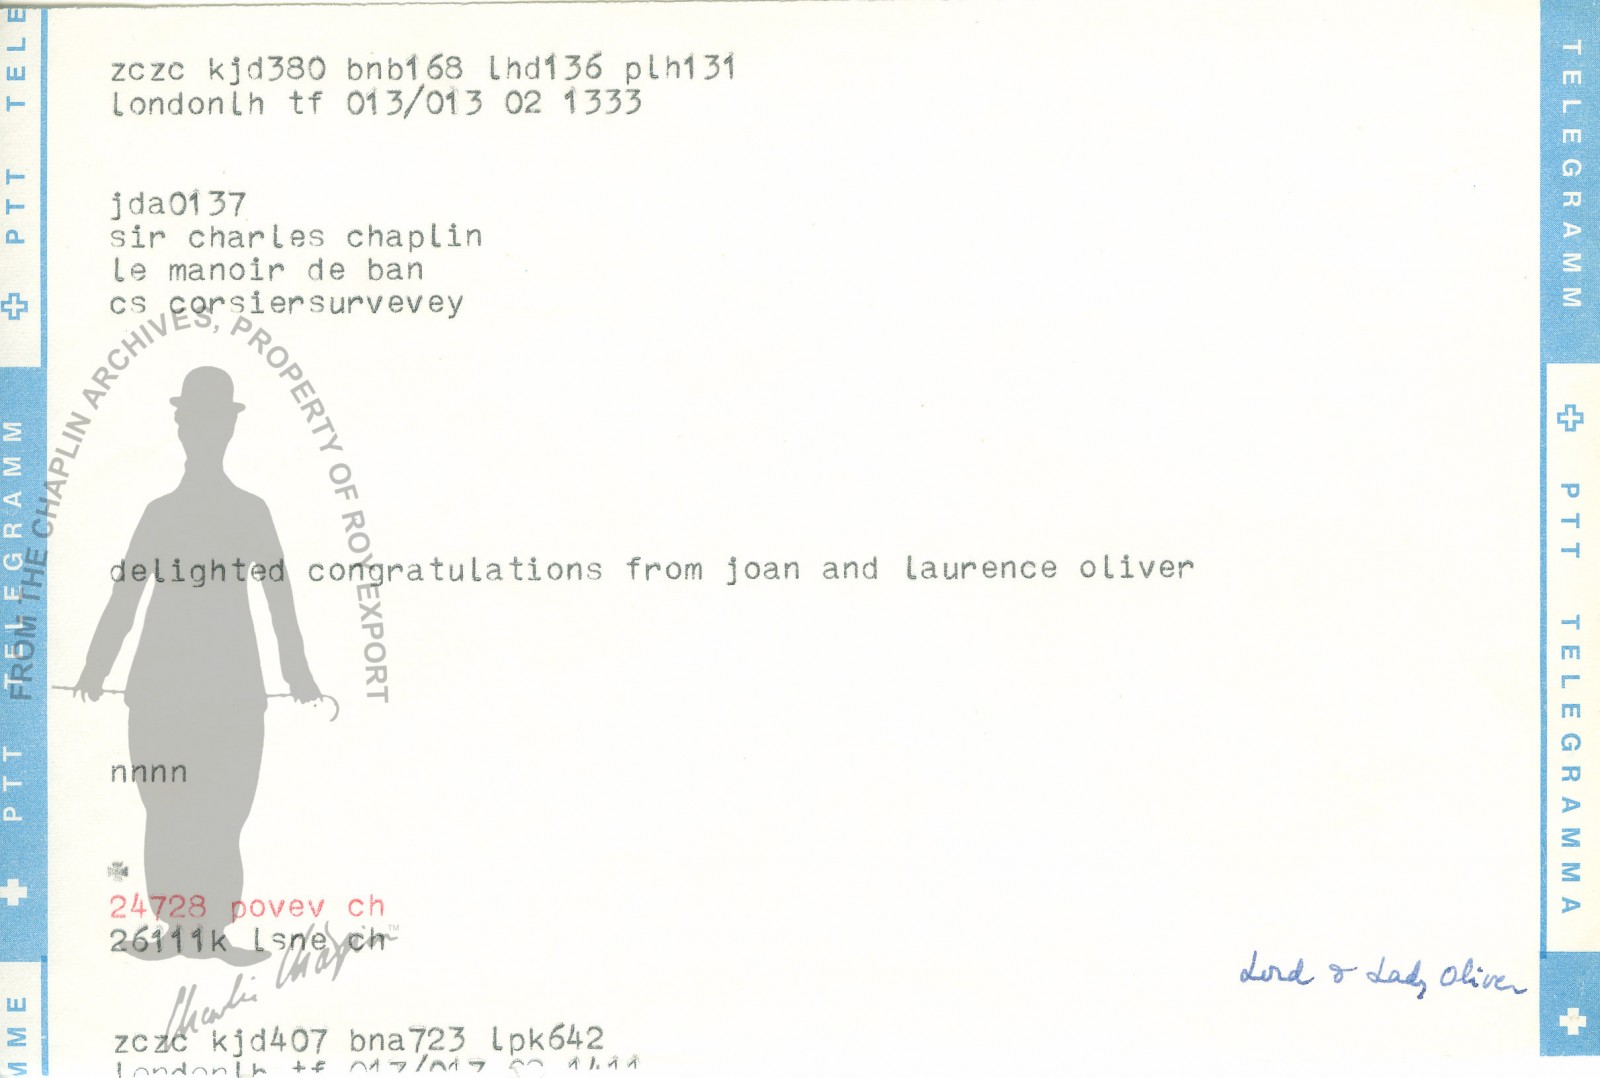 zczc kjd380 bnb168 lhd136 plh131
londonlh tf 013/013 02 1333
jda0137
sir charles chaplin
le manoir de ban
cs corsiersurvevey
delighted congratulations from joan and laurence oliver
nnnn
24728 povev ch
26111k lsne ch
zczc kjd407 bna723 lpk642
londonlh tf 017/017
Lord & Lady Oliver
FROM THE CHAPLIN ARCHIVES, PROPERTY OF ROY EXPORT
Charlie Chaplin™
PTT TELE
PTT TELEGRAMM
MME
TELEGRAMM
PTT TELEGRAMMA